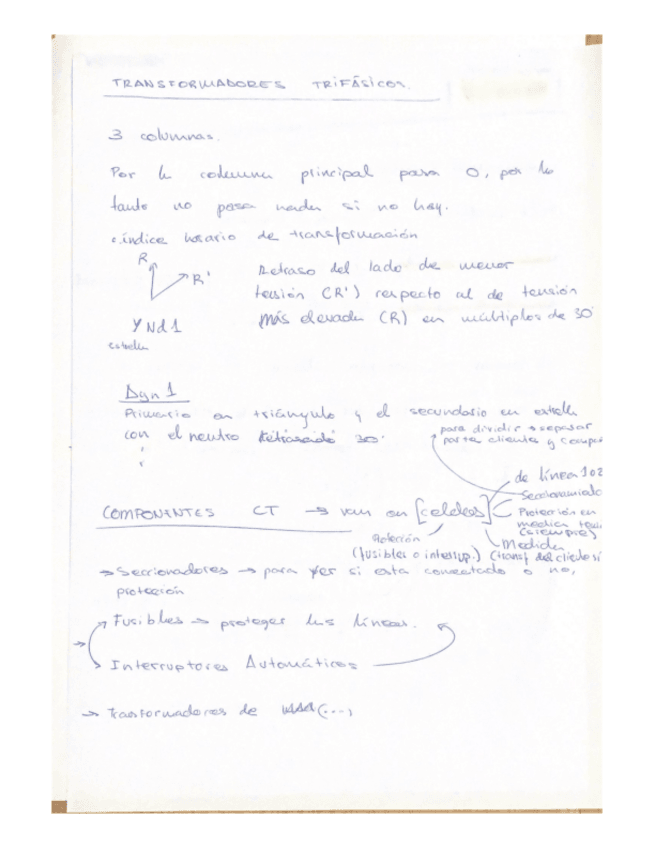 TRANSFORMADORES TRIFÁSICOS.
3 columnas.
Por la columna principal pasa 0, por lo
tanto no pasa nada si no hay.
índice horario de transformación
R
R'
Retraso del lado de menor
tensión (R') respecto al de tensión
más elevada (R) en múltiplos de 30º
YNd1
estrella
Dyn1
Primario en triángulo y el secundario en estrella
con el neutro retrasado 30º
para dividir o separar
parte cliente y
COMPONENTES CT → van en [celdas]
de línea 1 o 2
Seccionamiento
Protección en
media
(siempre)
Medida
(transf. del cliente
Protección
(fusibles o interrup.)
→ Seccionadores → para ver si esta conectado o no,
protección
Fusibles → proteger las líneas.
Interruptores Automáticos
→ Trasformadores de (...)